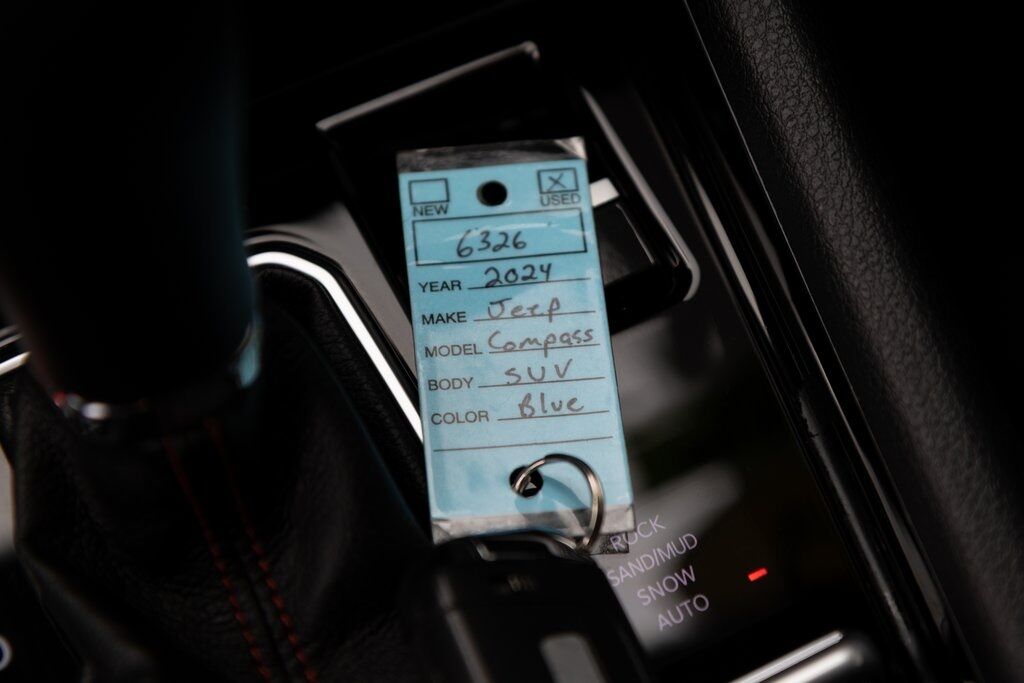 NEW USED
6326
YEAR 2024
MAKE Jeep
MODEL Compass
BODY SUV
COLOR Blue
ROCK
SAND/MUD
SNOW
AUTO